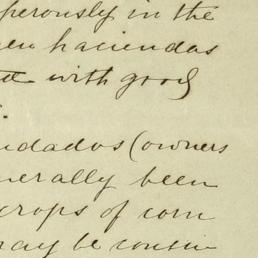 perously in the
haciendas
with good
dados (owners
nerally been
crops of corn
may be consu